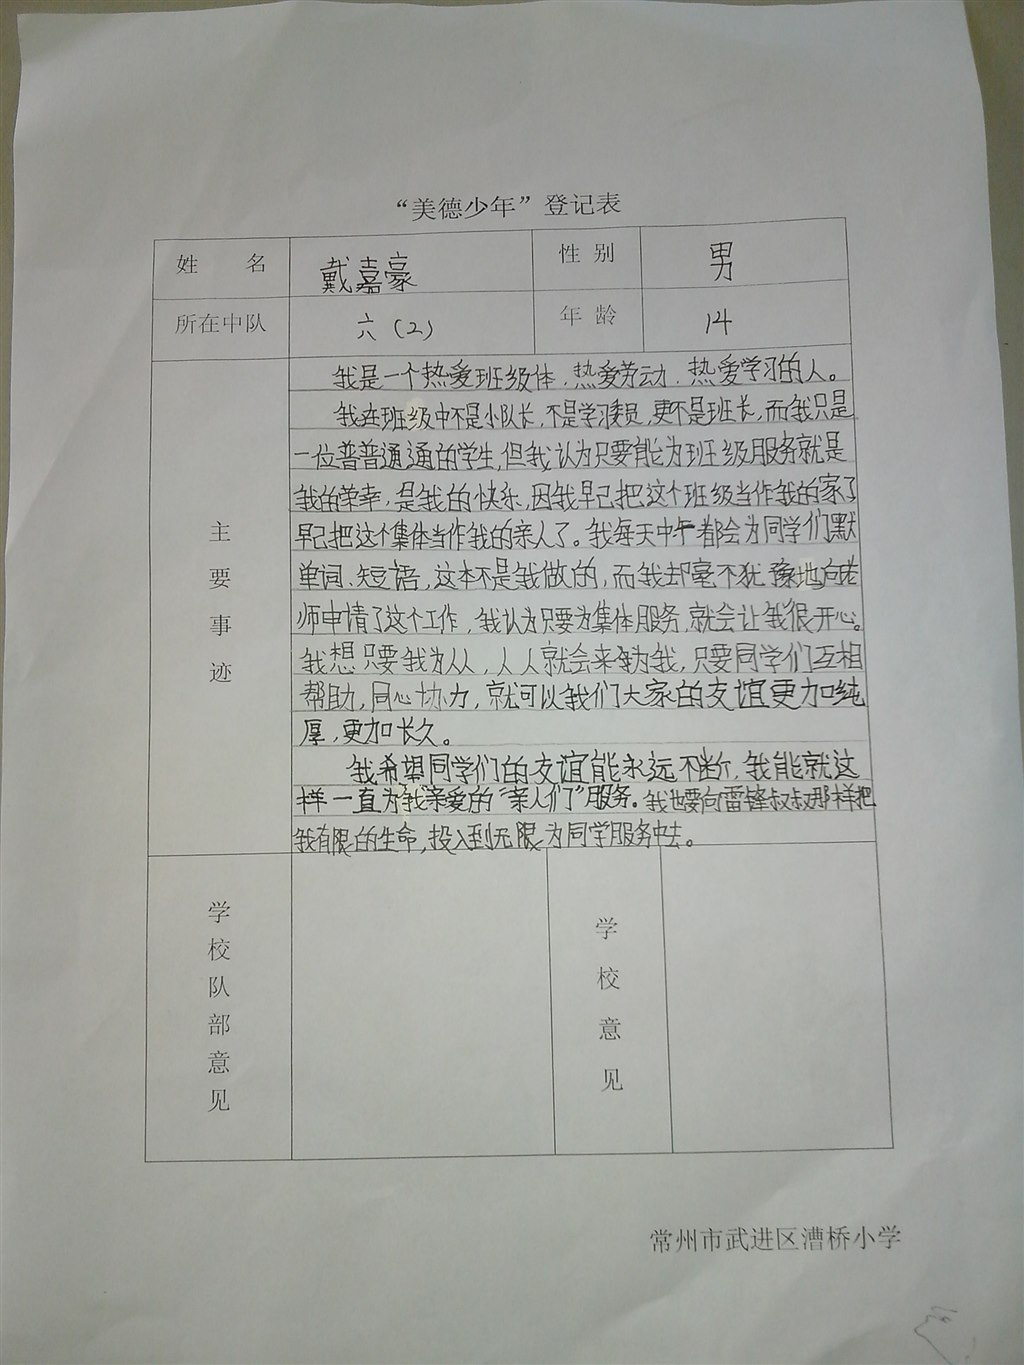 “美德少年”登记表
姓 名 戴嘉豪 性 别 男
所在中队 六(2) 年 龄 14
主要事迹
我是一个热爱班级体，热爱劳动，热爱学习的人。
我在班级中不是小队长，不是学习委员，更不是班长，而我只是
一位普普通通的学生，但我认为只要能为班级服务就是
我的荣幸，是我的快乐，因我早已把这个班级当作我的家了
早已把这个集体当作我的亲人了。我每天中午都会为同学们默
单词、短语，这本不是我做的，而我却毫不犹豫地向老
师申请了这个工作，我认为只要为集体服务，就会让我很开心。
我想只要我为人人，人人就会来为我，只要同学们互相
帮助，同心协力，就可以我们大家的友谊更加纯
厚，更加长久。
我希望同学们的友谊能永远不断，我能就这
样一直为我亲爱的“亲人们”服务。我也要向雷锋叔叔那样把
我有限的生命，投入到无限为同学服务中去。
学校队部意见
学校意见
常州市武进区漕桥小学